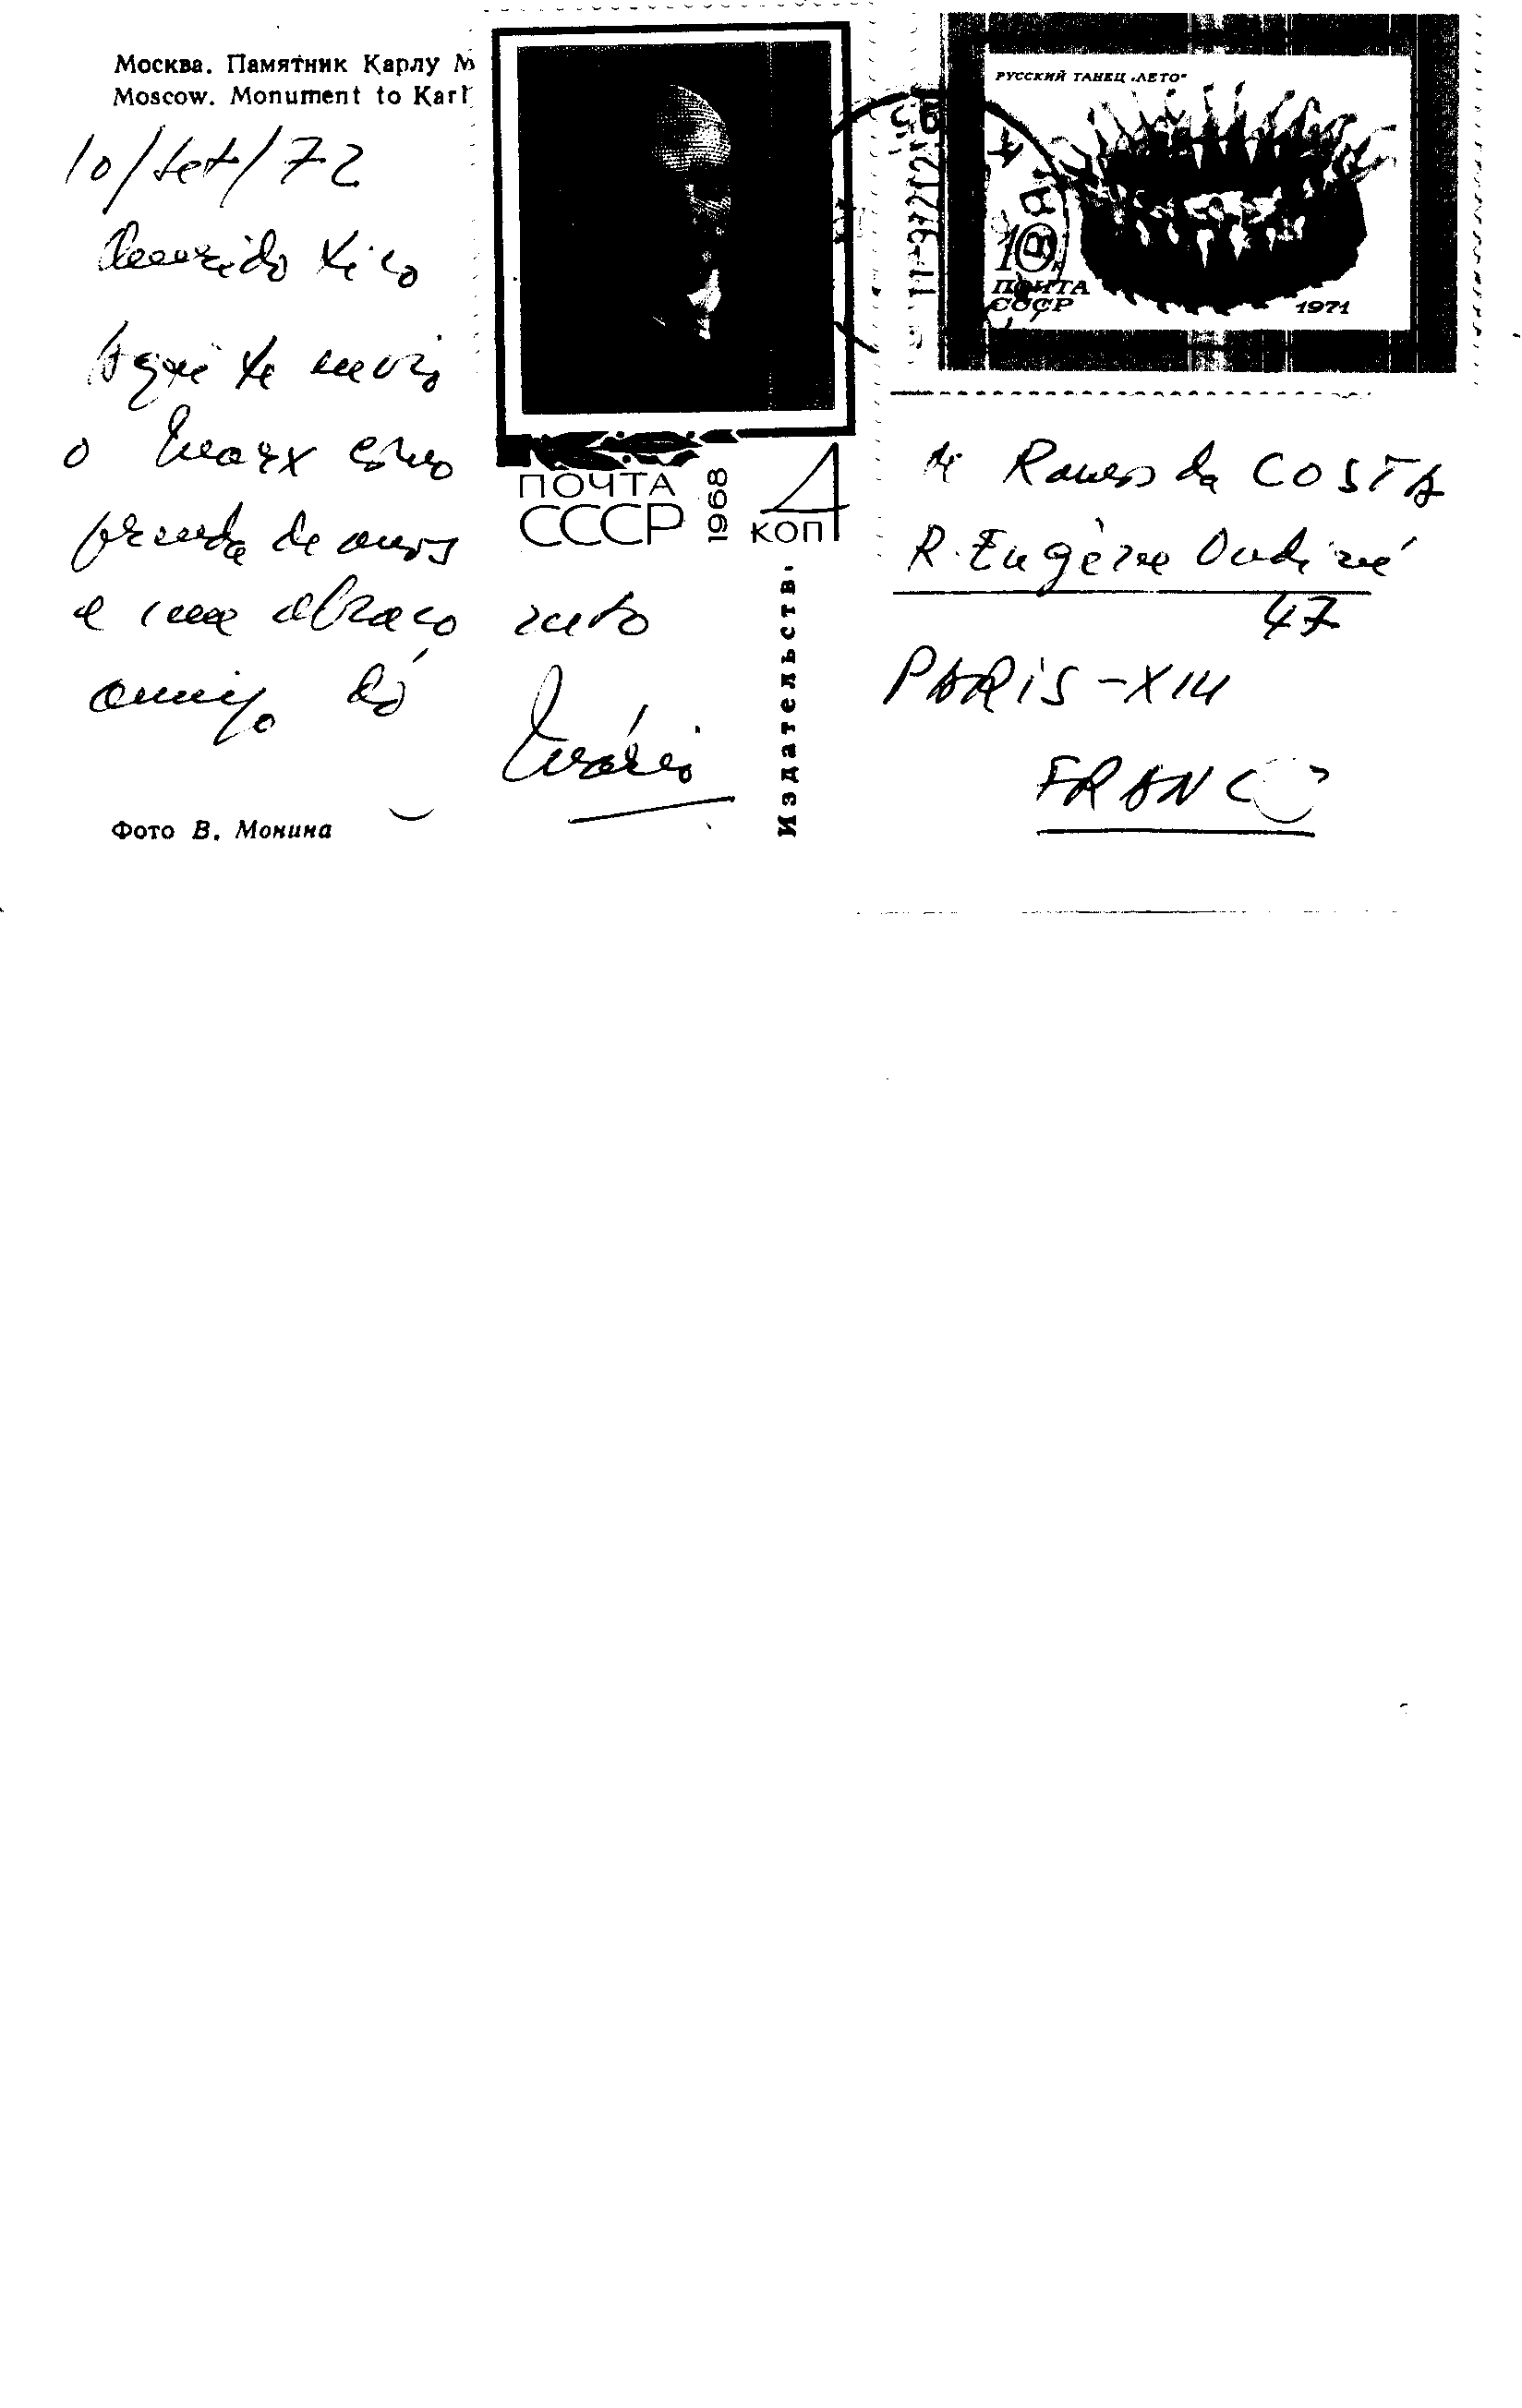 Москва. Памятник Карлу М
Moscow. Monument to Karl
10/set/72
Querido Xico
Aqui te envio
o Marx como
prenda de anos
e um abraço muto
amigo do
Mário
Фото В. Монина
ПОЧТА
СССР
1968
4
КОП
Издательств
РУССКИЙ ТАНЕЦ „ЛЕТО"
10
ПОЧТА
СССР
1971
Ramos da COSTA
R. Eugène Oudiné
47
PARIS - XIII
FRANC